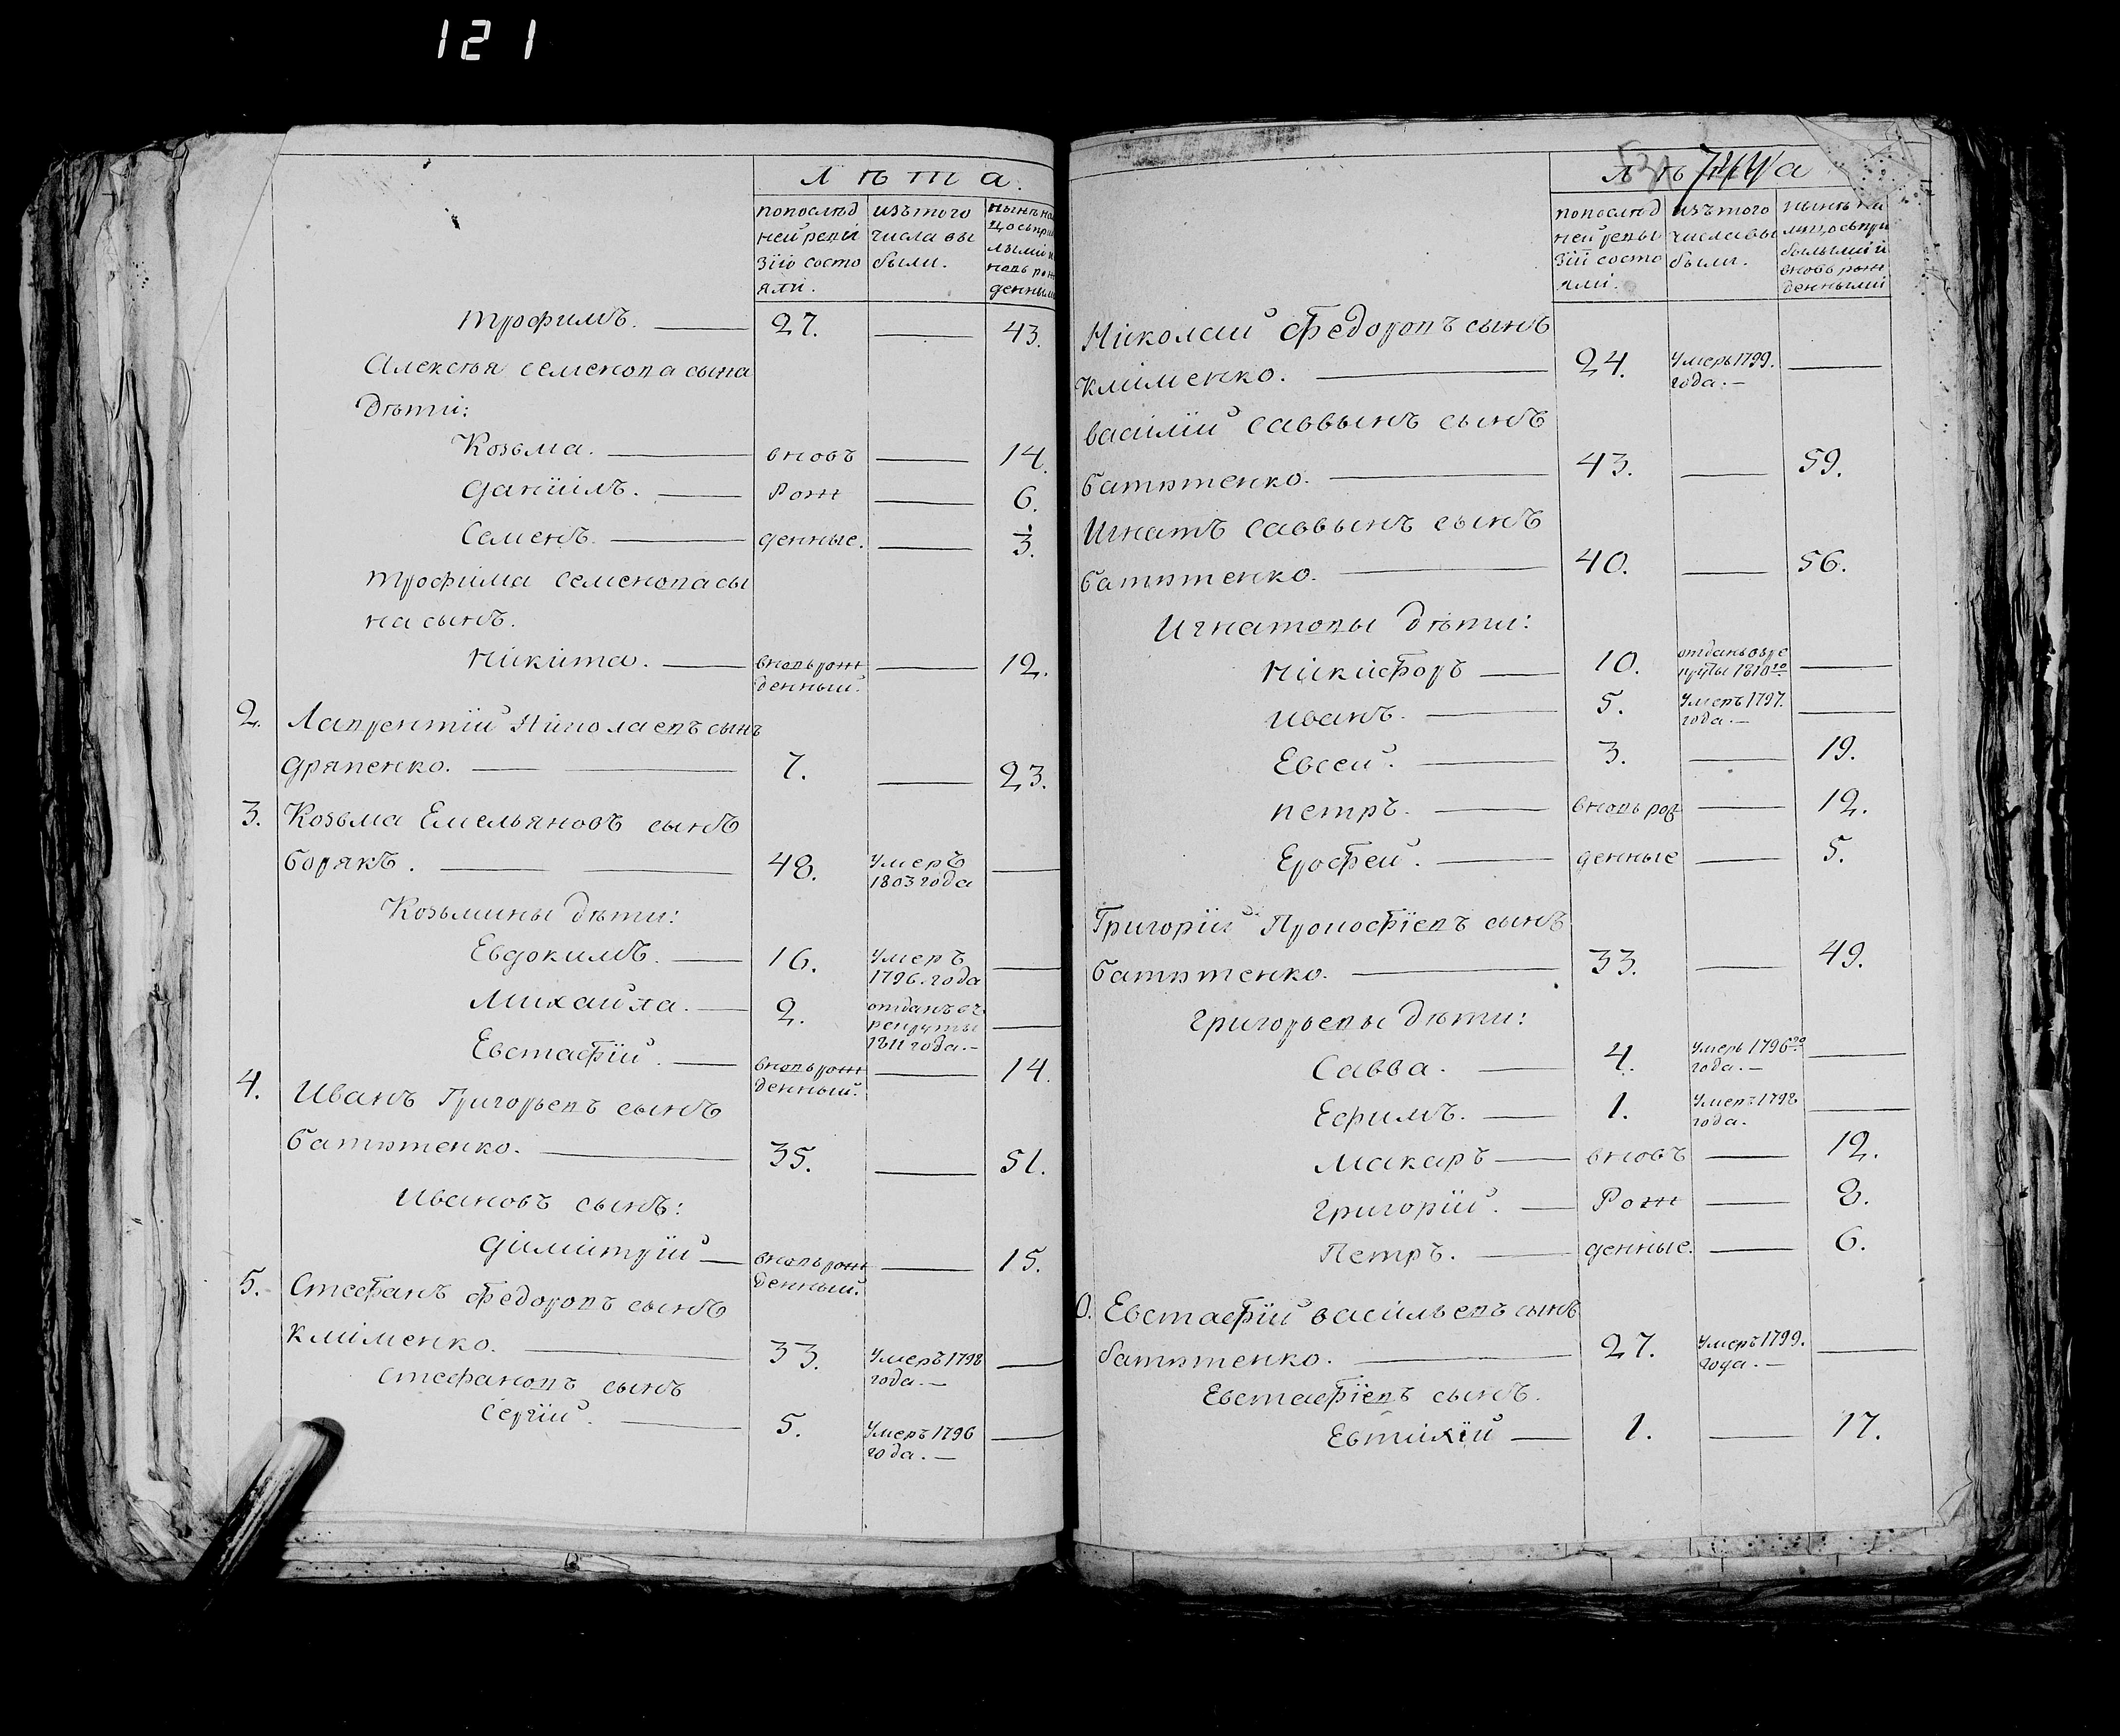 121
Лѣта.
попослѣд ней ревизіи состояли.
изъ того числа выбыли.
Трофимъ. 27. 43.
Алексѣя Семенова сына
Дѣти:
Козьма. вновь 14.
Даніилъ. рож 6.
Семенъ. денные. 1/3.
Трофима Семенова сы
на сынъ.
Никита. вновь рож денный. 12.
2. Лаврентій Николаевъ сынъ
Дряпенко. 7. 23.
3. Козьма Емельяновъ сынъ
Борякъ. 48. умеръ 1803 года
Козьмины дѣти:
Евдокимъ. 16. умеръ 1796. года
Михайла. 2. отданъ въ рекруты 1811 года.
Евстафій. вновь рож денный. 14.
4. Иванъ Григорьевъ сынъ
Батютенко. 35. 51.
Ивановъ сынъ:
Димитрій вновь рож денный. 15.
5. Стефанъ Федоровъ сынъ
Клименко. 33. умеръ 1798 года.
Стефановъ сынъ
Сергій. 5. умеръ 1796 года.
Лѣта
попослѣд ней ревизіи состояли.
изъ того числа выбыли.
нынѣ на лицо съ прибылыми и вновь рож денными
Николай Федоровъ сынъ
Клименко. 24. умеръ 1799. года.
Василій Саввынъ сынъ
Батютенко. 43. 59.
Игнатъ Саввынъ сынъ
Батютенко. 40. 56.
Игнатовы дѣти:
Никифоръ 10. отданъ в рекруты 1810го
Иванъ. 5. умеръ 1797. года.
Евсей. 3. 19.
Петръ. вновь рож 12.
Ерофей. денные 5.
Григорій Прокофіевъ сынъ
Батютенко. 33. 49.
Григорьевы дѣти:
Савва. 4. умеръ 1796го года.
Ефимъ. 1. умеръ 1798 года.
Макаръ вновь 12.
Григорій. рож 8.
Петръ. денные. 6.
Евстафій Васильевъ сынъ
Батютенко. 27. умеръ 1799. года.
Евстафіевъ сынъ.
Евтихій 1. 17.